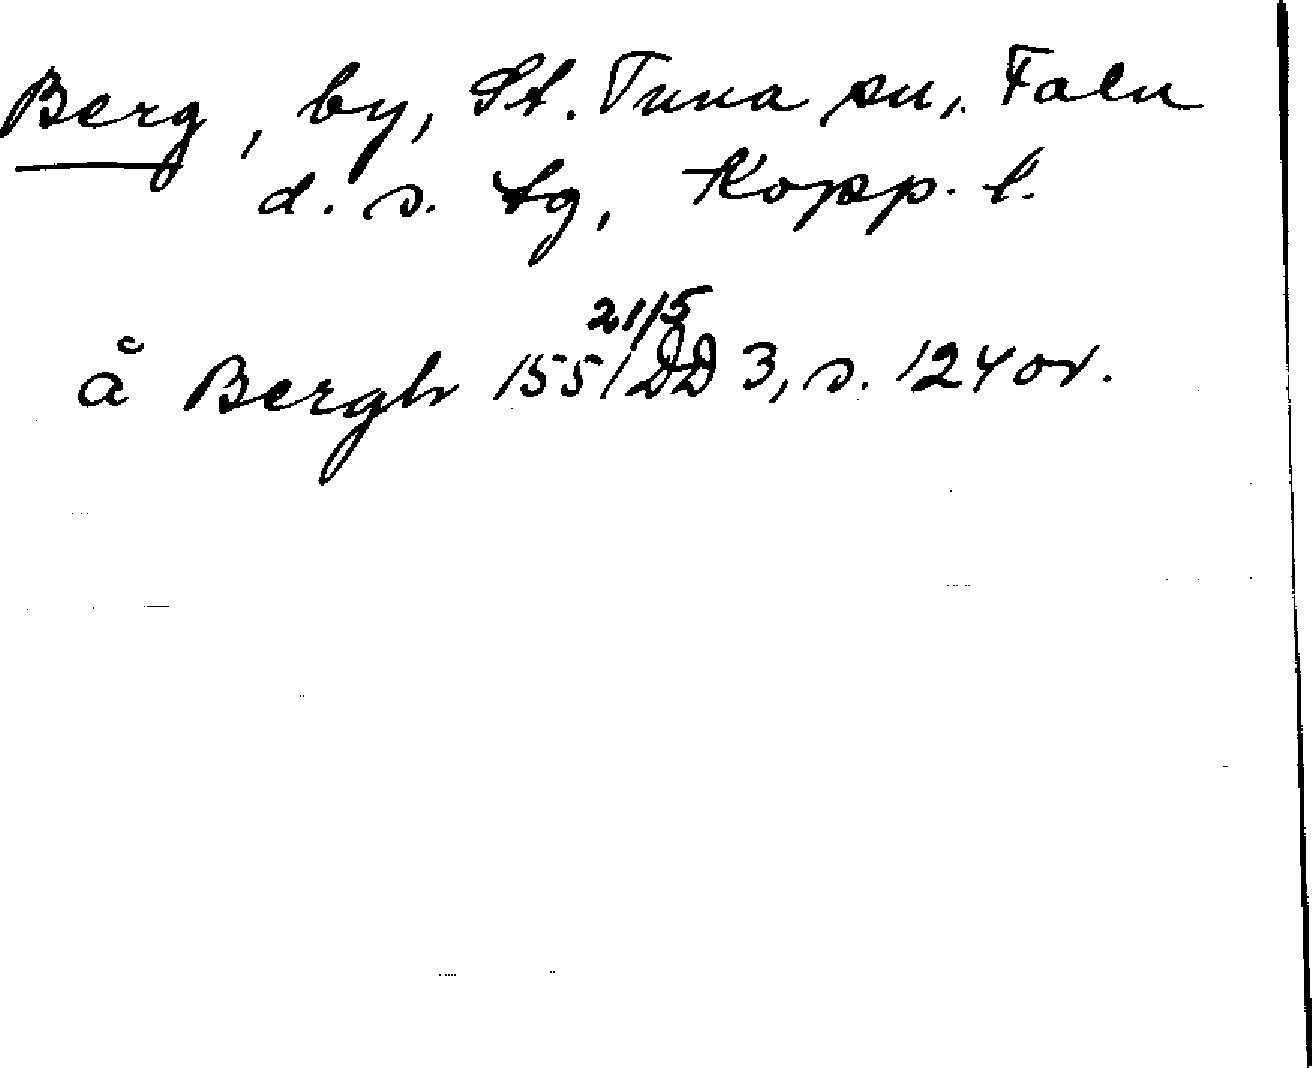 Berg, by, St. Tuna sn, Falu
d. s. tg, Kopp. l.
21/5
å Bergh 155 / DD 3, s. 124 ov.